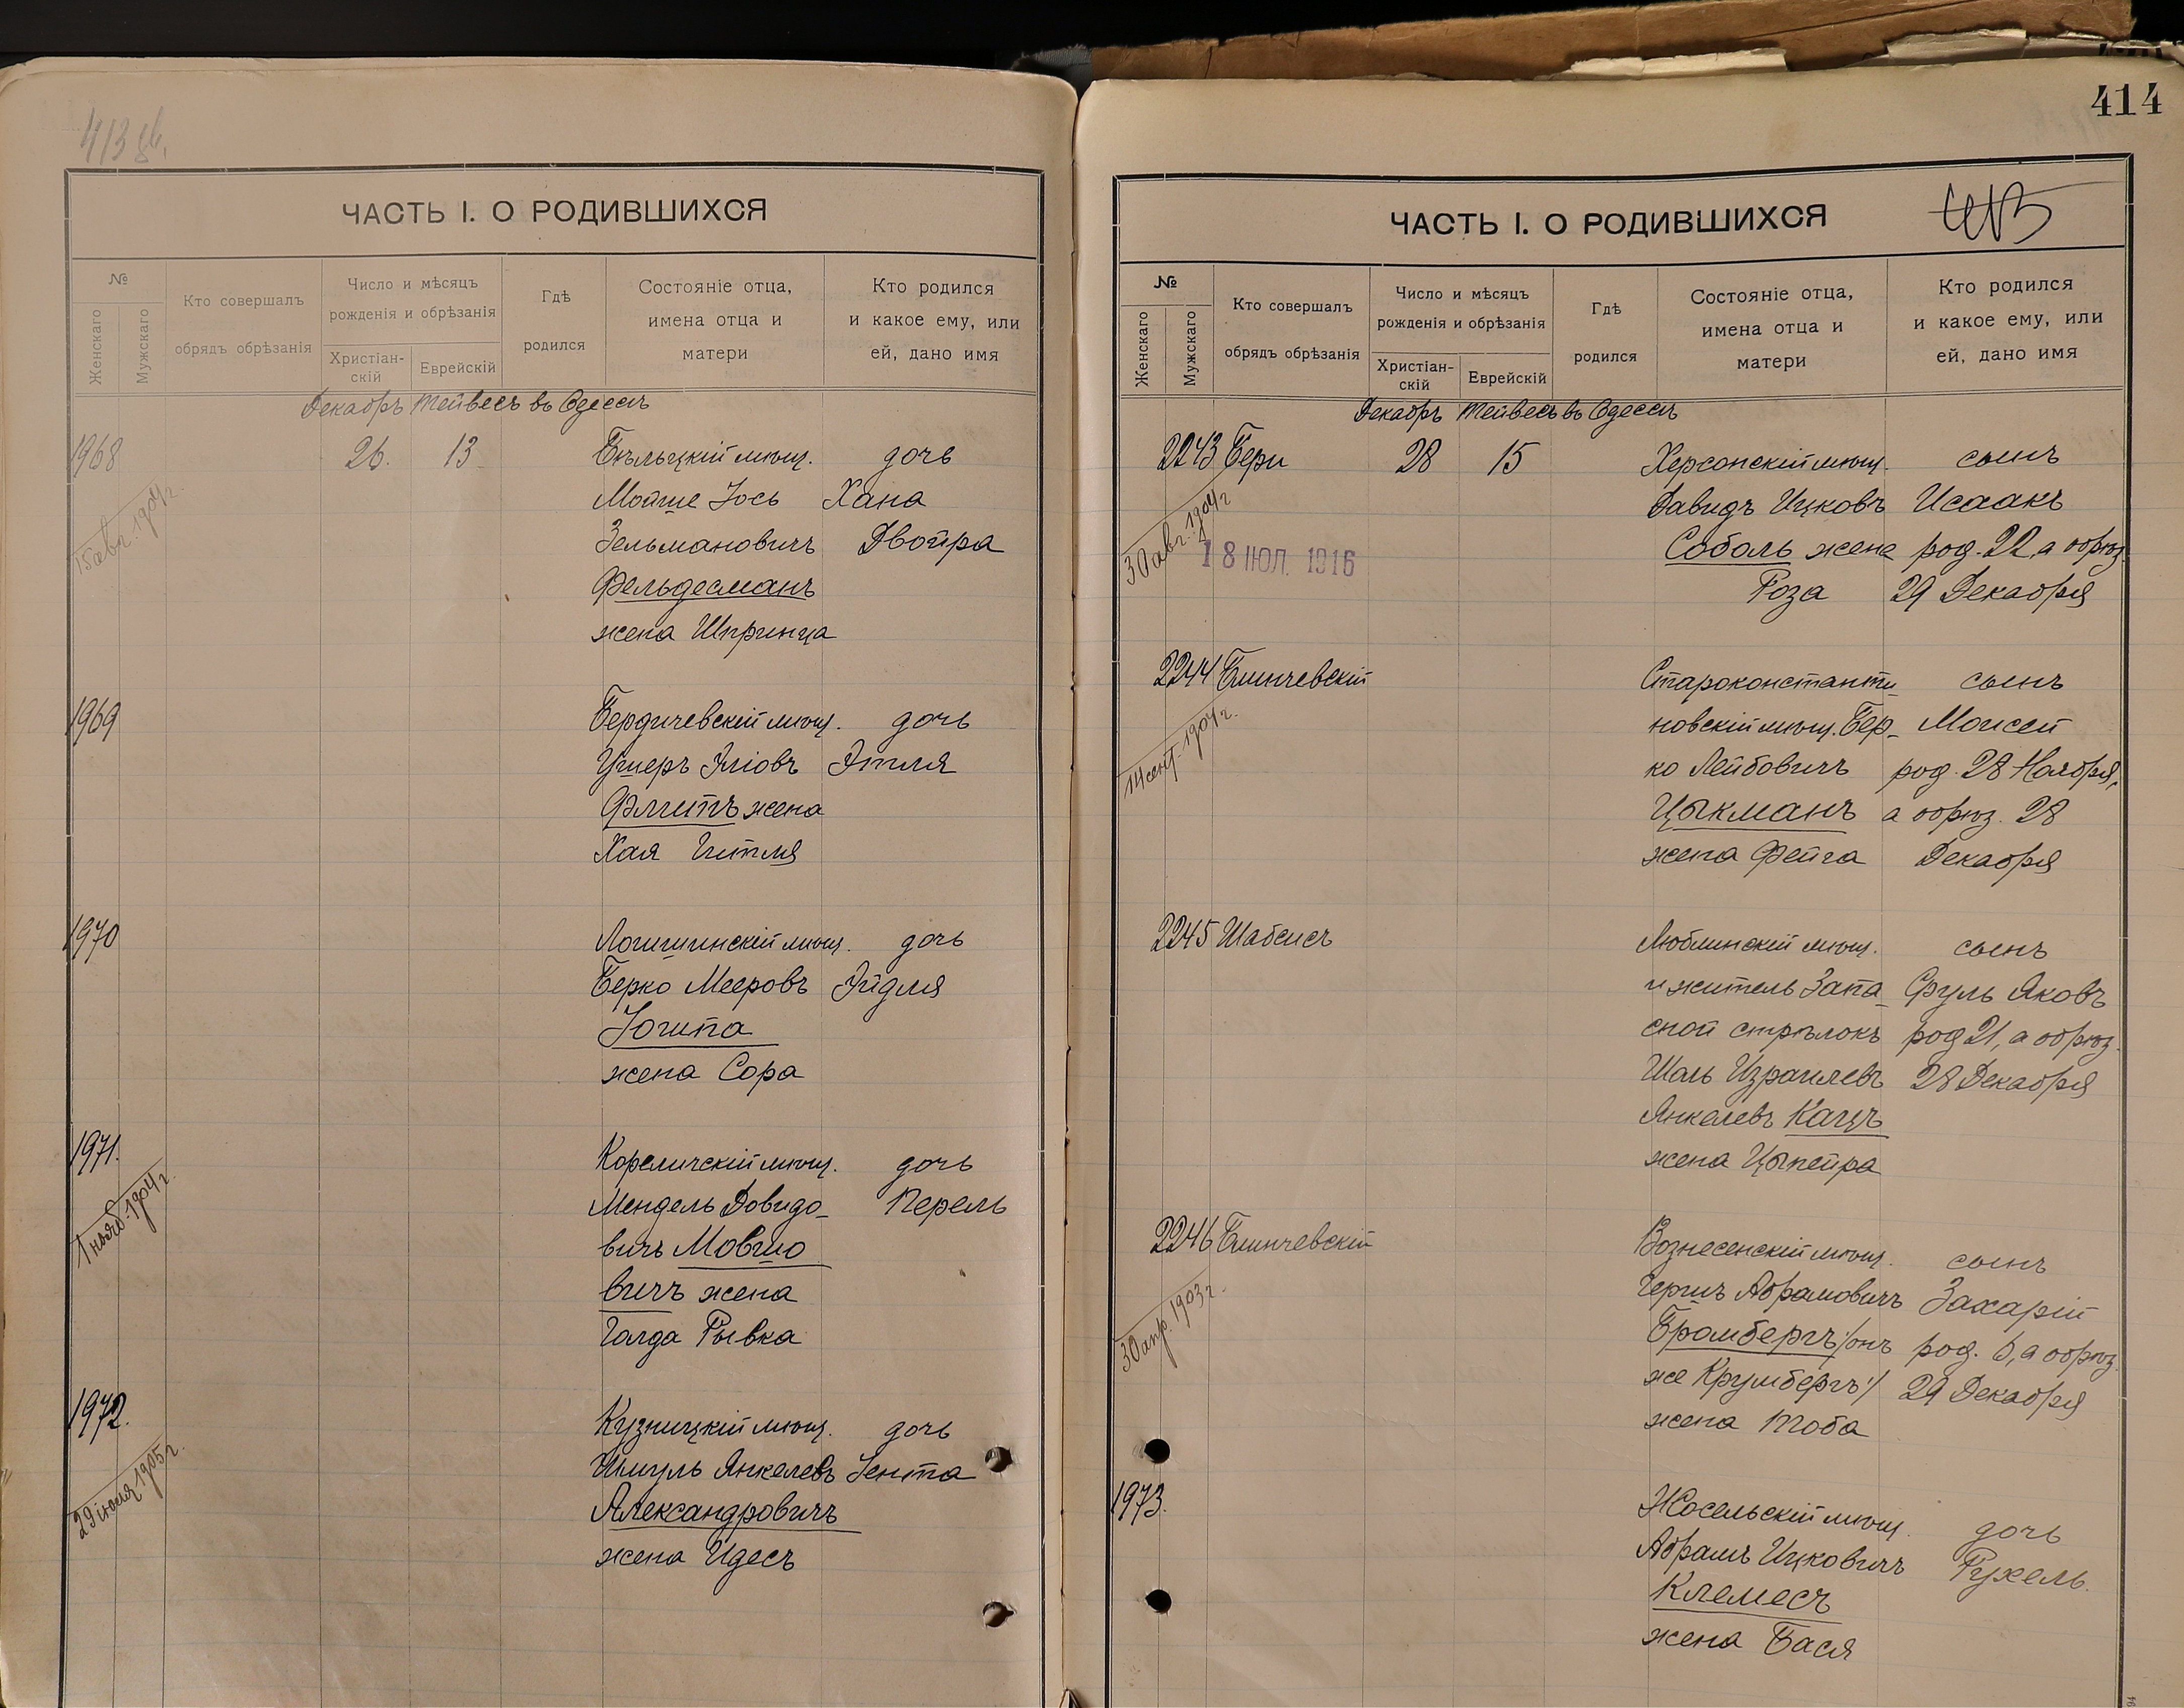 413 об.
ЧАСТЬ I. О РОДИВШИХСЯ
№
Женскаго
Мужскаго
Кто совершалъ
обрядъ обрѣзанія
Число и мѣсяцъ
рожденія и обрѣзанія
Христіан-
скій
Еврейскій
Гдѣ
родился
Состояніе отца,
имена отца и
матери
Кто родился
и какое ему, или
ей, дано имя
Декабрь Тейвесъ въ Одессѣ
1968 26. 13 Бѣльцкій мѣщ. дочь
15 авг. 1904 г.
Мойше Іось Хана
Зельмановичъ Двойра
Фельдесманъ
жена Шпринца
1969 Бердичевскій мѣщ. дочь
Ушеръ Эліовъ Этля
жена
Хая Гитля
1970 Логишинскій мѣщ. дочь
Берко Мееровъ Эйдля
жена Сора
1971. Кореличскій мѣщ. дочь
1 нояб. 1904 г.
Мендель Довидо- Перель
вичъ Мовшо
вичъ жена
Голда Рывка
1972. Кузницкій мѣщ. дочь
29 іюля 1905 г.
Шмуль Янкелевъ Іента
Александровичъ
жена Идесъ
414
ЧАСТЬ I. О РОДИВШИХСЯ
413
№
Женскаго
Мужскаго
Кто совершалъ
обрядъ обрѣзанія
Число и мѣсяцъ
рожденія и обрѣзанія
Христіан-
скій
Еврейскій
Гдѣ
родился
Состояніе отца,
имена отца и
матери
Кто родился
и какое ему, или
ей, дано имя
Декабрь Тейвесъ въ Одессѣ
2243 Бери 28 15 Херсонскій мѣщ. сынъ
30 авг. 1904 г
18 ІЮЛ. 1916
Давидъ Ицковъ Исаакъ
Соболь жена род. 22, а обрѣз.
Роза 29 Декабря
2244 Блинчевскій Староконстанти- сынъ
14 сент. 1904 г.
новскій мѣщ. Бер- Моисей
ко Лейбовичъ род. 28 Ноября,
Цыкманъ а обрѣз. 28
жена Фейга Декабря
2245 Шабсисъ Люблинскій мѣщ. сынъ
и житель Запа- Сруль Яковъ
сной стрѣлокъ род 21, а обрѣз.
Шоль Израилевъ 28 Декабря
Янкелевъ Кацъ
жена Цыпейра
2246 Блинчевскій Вознесенскій мѣщ. сынъ
30 апр. 1903 г.
Гершъ Абрамовичъ Захарій
Бромбергъ /онъ род. 6, а обрѣз.
же Крумбергъ/ 29 Декабря
жена Тоба
1973. мѣщ. дочь
Абрамъ Ицковичъ Рухель.
Клемесъ
жена Бася